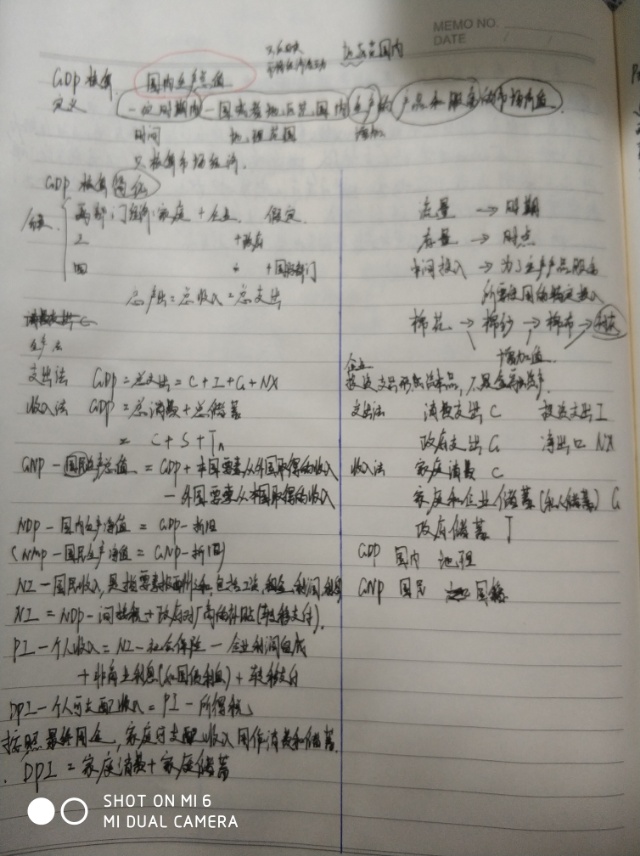 MEMO NO.
DATE / /
地域范围内
GDP核算 国内生产总值
定义 一定时期内一国或者地区范围内生产的产品和服务的市场价值
时间 地理范围
只核算市场经济.
GDP核算
两部门经济:家庭+企业 假定
三 +政府
四 +国际部门
总产出=总收入=总支出
消费支出C
生产法
支出法 GDP=总支出=C+I+G+NX
收入法 GDP=总消费+总储蓄
= C+S+Tn
GNP-国民生产总值=GDP+本国要素从外国取得的收入
-外国要素从本国取得的收入
NDP-国内生产净值=GDP-折旧
(NNP-国民生产净值=GNP-折旧)
NI-国民收入,是指要素
包括工资,租金,利润,利息
NI=NDP-间接税+政府对厂商的补贴(转移支付).
PI-个人收入=NI-社会保险-企业利润
+非商业利息(如国债利息)+转移支付
DPI-个人可支配收入=PI-所得税
按照最终用途,家庭可支配收入用作消费和储蓄.
DPI=家庭消费+家庭储蓄
流量→时期
存量→时点
中间投入→为了生产产品服务
所需使用的
投入
棉花→棉纱→棉布→
增加值
企业
支出法 消费支出C 投资支出I
政府支出G 净出口NX
收入法 家庭消费C
家庭和企业储蓄(私人储蓄)
政府储蓄T
GDP 国内 地理
GNP 国民 国籍
SHOT ON MI 6
MI DUAL CAMERA